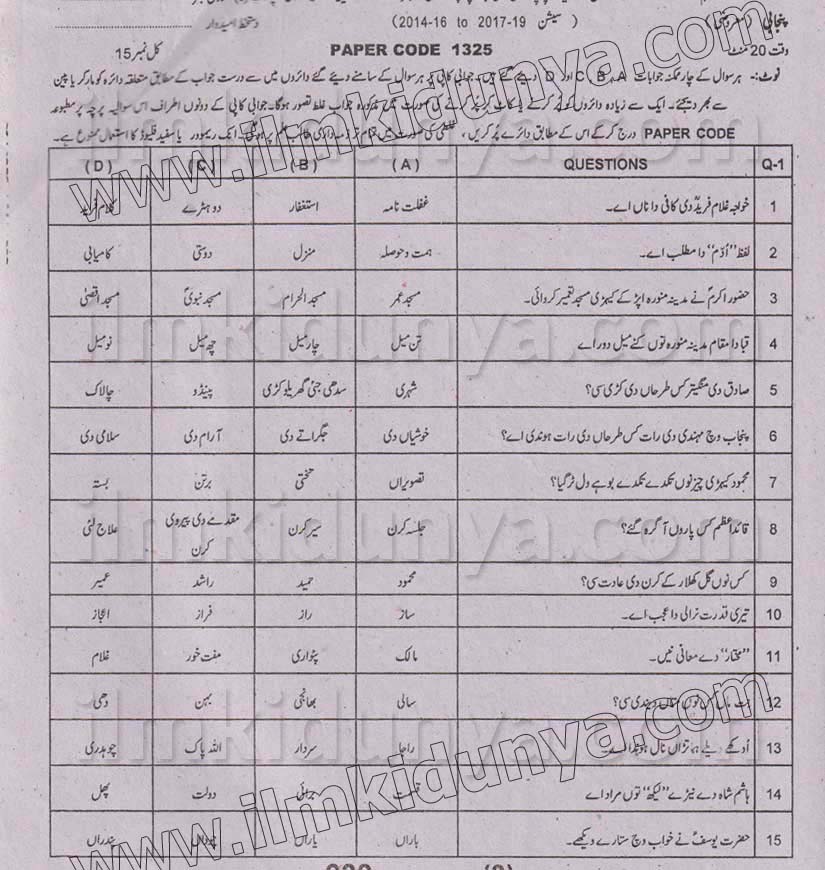 پنجابی (معروضی) (سیشن 2014-16 to 2017-19) دستخط امیدوار
وقت 20 منٹ PAPER CODE 1325 کل نمبر 15
نوٹ:- ہر سوال کے چار ممکنہ جوابات A، B، C اور D دیئے گئے ہیں۔ جوابی کاپی پر ہر سوال کے سامنے دیئے گئے دائروں میں سے درست جواب کے مطابق متعلقہ دائرہ کو مارکر یا پین
سے بھر دیجئے۔ ایک سے زیادہ دائروں کو پُر کرنے یا کاٹ کر پُر کرنے کی صورت میں مذکورہ جواب غلط تصور ہوگا۔ جوابی کاپی کے دونوں اطراف اس سوالیہ پرچہ پر مطبوعہ
PAPER CODE درج کر کے اس کے مطابق دائرے پُر کریں، غلطی کی صورت میں تمام تر ذمہ داری طالب علم پر ہوگی۔ انک ریمور یا سفید فلیوڈ کا استعمال ممنوع ہے۔
Q-1 QUESTIONS (A) (B) (C) (D)
1 خواجہ غلام فریدؒ دی کافی دا ناں اے۔ غفلت نامہ استغفار دوہڑے کلام فرید
2 لفظ "اُدّم" دا مطلب اے۔ ہمت و حوصلہ منزل دوستی کامیابی
3 حضور اکرمؐ نے مدینہ منورہ اپڑ کے کیہڑی مسجد تعمیر کروائی۔ مسجد عمر مسجد الحرام مسجد نبویؐ مسجد اقصیٰ
4 قبا دا مقام مدینہ منورہ توں کِنے میل دور اے تن میل چار میل چھ میل نو میل
5 صادق دی منگیتر کس طرحاں دی کڑی سی؟ شہری سدھی جئی گھریلو کڑی پینڈو چالاک
6 پنجاب وچ مہندی دی رات کس طرحاں دی رات ہوندی اے؟ خوشیاں دی جگراتے دی آرام دی سلامی دی
7 محمود کیہڑی چیز نوں تکدے تکدے بوہے ول ٹر گیا؟ تصویراں تختی برتن بستہ
8 قائداعظم کس پاروں آگرہ گئے؟ جلسہ کرن سیر کرن مقدمے دی پیروی کرن علاج لئی
9 کس نوں گل کھلار کے کرن دی عادت سی؟ محمود حمید راشد عمیر
10 تیری قدرت نرالی دا عجب اے۔ ساز راز فراز اعجاز
11 "مختار" دے معانی نیں۔ مالک پٹواری مفت خور غلام
12 ماں کس نوں دیندی سی؟ سالی بھانجی بہن دھی
13 اوکھے ویلے ہماتڑاں نال راجا سردار اللہ پاک چوہدری
14 ہاشم شاہ دے نیڑے "لیکھ" توں مراد اے قسمت دولت پھل
15 حضرت یوسفؑ نے خواب وچ ستارے ویکھے۔ باراں یاراں پندراں
www.ilmkidunya.com
ilmkidunya.com
ilmkidunya.com
ilmkidunya.com
ilmkidunya.com
www.ilmkidunya.com